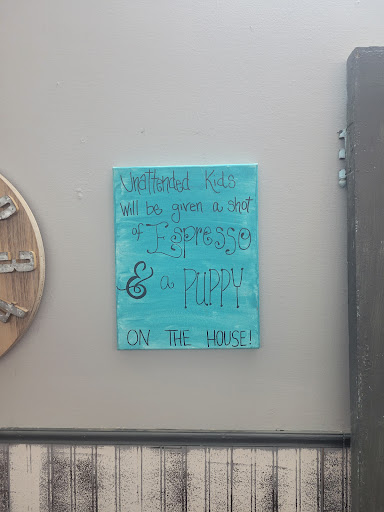 Unattended Kids
will be given a shot
of Espresso
& a PUPPY
ON THE HOUSE!